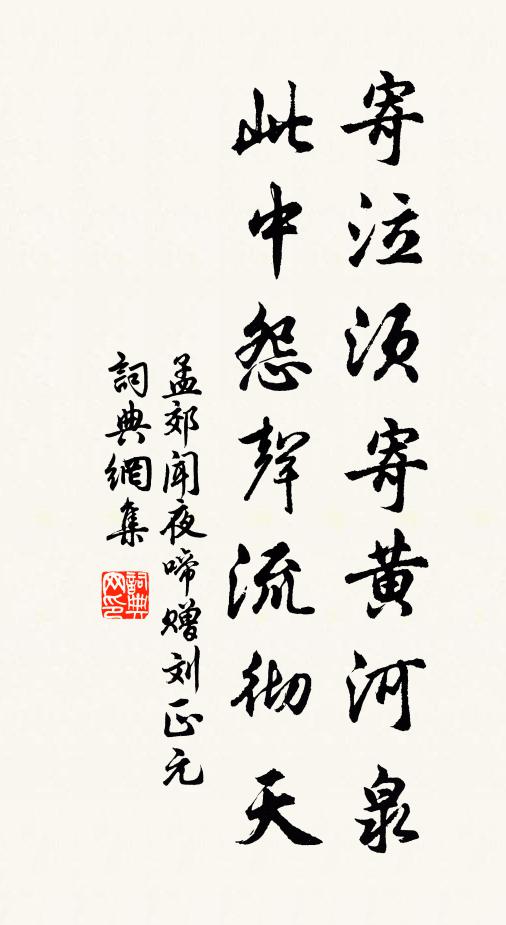 寄泣须寄黄河泉
此中怨聲流彻天
孟郊闻夜啼赠刘正元
詞典網集
詞典网印